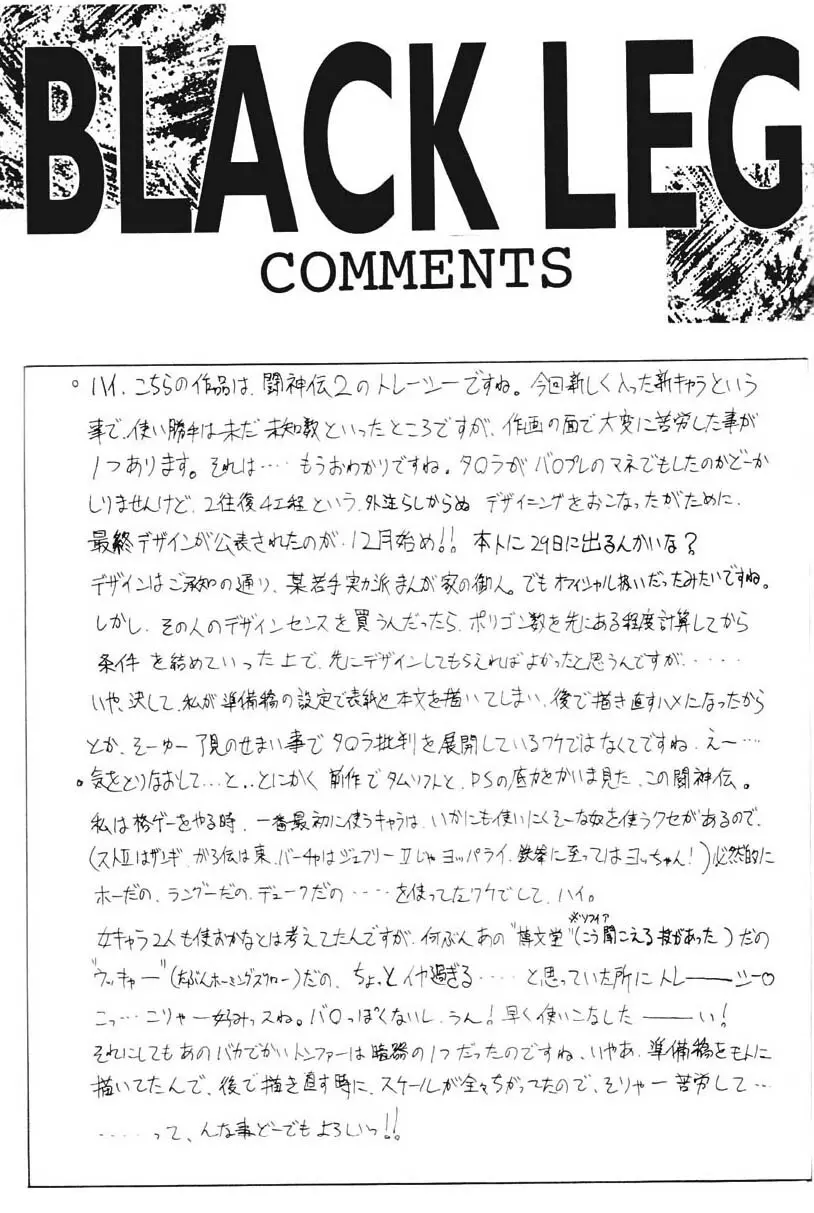 BLACK LEG
COMMENTS
。ハイ、こちらの作品は、闘神伝2のトレーシーですね。今回新しく入った新キャラという
事で、使い勝手は未だ未知数といったところですが、作画の面で大変に苦労した事が
1つあります。それは‥‥もうおわかりですね。タロラがバロプレのマネでもしたのかどーか
しりませんけど、2往復4工程という、外注らしからぬ デザイニングをおこなったがために、
最終デザインが公表されたのが、12月始め!! 本トに29日に出るんかいな?
デザインはご承知の通り、某若手実力派まんが家の御人。でもオフィシャル扱いだったみたいですね。
しかし、その人のデザインセンスを買うんだったら、ポリゴン数を先にある程度計算してから
条件を結めていった上で、先にデザインしてもらえればよかったと思うんですが、‥‥‥
いや、決して、私が準備稿の設定で表紙と本文を描いてしまい、後で描き直すハメになったから
とか、そーゆー了見のせまい事でタロラ批判を展開しているワケではなくてですね、えー‥‥
。気をとりなおして‥と‥とにかく前作でタムソフトと、PSの底力をかいま見た、この闘神伝。
私は格ゲーをやる時、一番最初に使うキャラは、いかにも使いにくそーな奴を使うクセがあるので、
(ストIIはザンギ、がろ伝は東、バーチャはジェフリー IIじゃヨッパライ、鉄拳に至ってはヨッちゃん!)必然的に
ホーだの、ラングーだの、デュークだの‥‥を使ってたワケでして、ハイ。
女キャラ2人も使おかなとは考えてたんですが、何ぶんあの"博文堂"(※ソフィア こう聞こえる技があった)だの
"ウッキャー"(たぶんホーミングスクロー)だの、ちょっとイヤ過ぎる‥‥と思っていた所にトレ――シー♡
こっ‥こりゃー好みっスね。バロっぽくないし、うん!早く使いこなした――い!
それにしてもあのバカでかいトンファーは暗器の1つだったのですね、いやあ、準備稿をモトに
描いてたんで、後で描き直す時に、スケールが全々ちがってたので、そりゃー苦労して‥‥
‥‥‥って、んな事どーでもよろしいっ!!